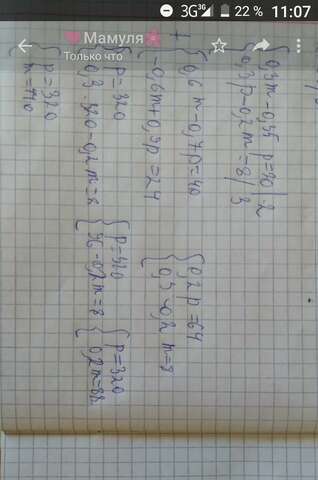 3G 3G 22 % 11:07
Мамуля
Только что
0,3m-0,35p=20|·2
0,3p-0,2m=8|·3
+
0,6m-0,7p=40
-0,6m+0,9p=24
0,2p=64
0,3-0,2m=8
p=320
0,3·320-0,2m=8
p=320
96-0,2m=8
p=320
0,2m=88
p=320
m=440